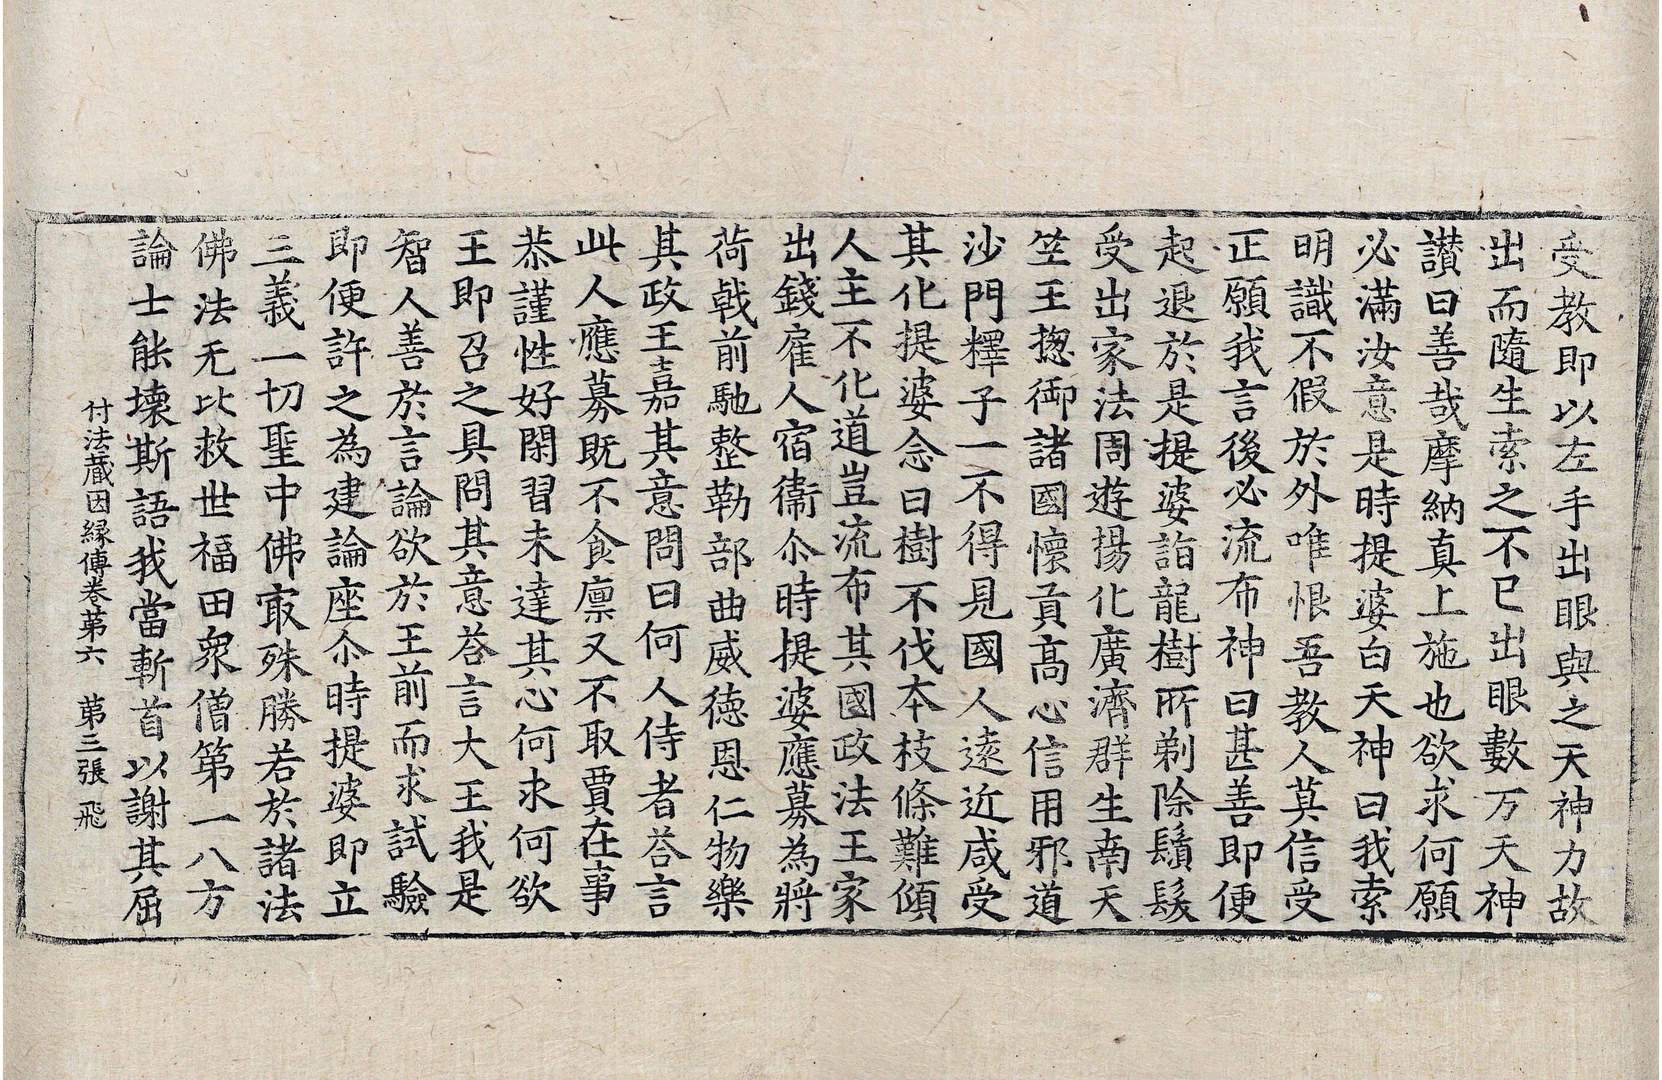 受教即以左手出眼與之天神力故
出而隨生索之不已出眼數万天神
讃曰善哉摩納真上施也欲求何願
必滿汝意是時提婆白天神曰我索
明識不假於外唯恨吾教人莫信受
正願我言後必流布神曰甚善即便
起退於是提婆詣龍樹所剃除鬚髮
受出家法周遊揚化廣濟群生南天
竺王揔御諸國懷貢高心信用邪道
沙門釋子一不得見國人遠近咸受
其化提婆念曰樹不伐本枝條難傾
人主不化道豈流布其國政法王家
出錢雇人宿衛尒時提婆應募為將
荷戟前馳整勒部曲威德恩仁物樂
其政王嘉其意問曰何人侍者荅言
此人應募既不食廪又不取賈在事
恭謹性好閑習未達其心何求何欲
王即召之具問其意荅言大王我是
智人善於言論欲於王前而求試驗
即便許之為建論座尒時提婆即立
三義一切聖中佛㝡殊勝若於諸法
佛法无比救世福田衆僧第一八方
論士能壞斯語我當斬首以謝其屈
付法藏因縁傳卷第六 第三張 飛